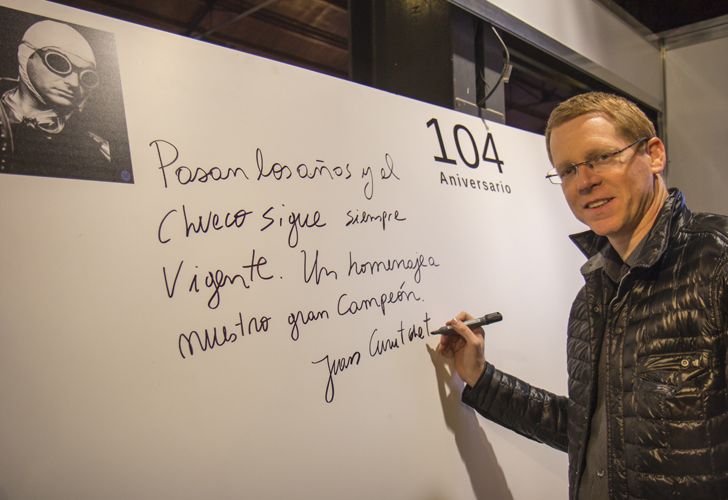 104
Aniversario
Pasan los años y el
Chueco sigue siempre
Vigente. Un homenaje a
nuestro gran Campeón.
Juan Curutchet